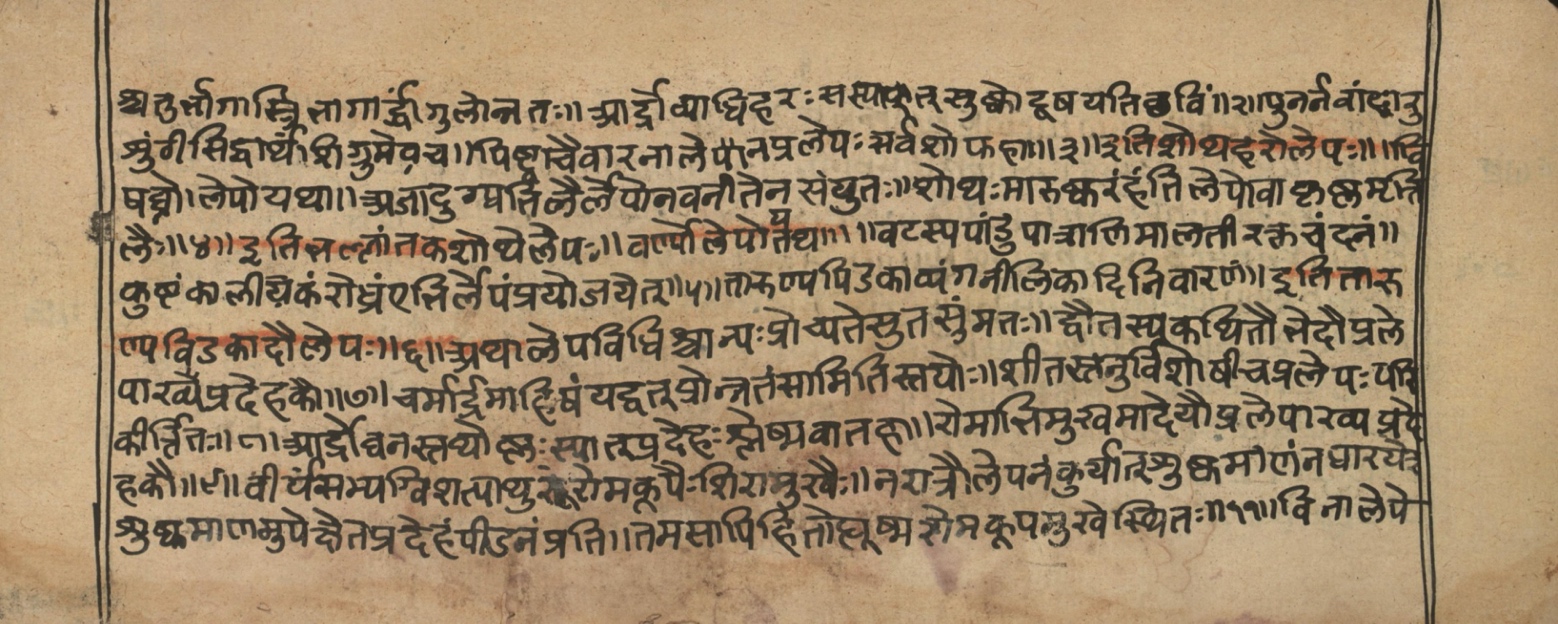 श्चतुर्भागास्त्रिभागार्द्धांगुलोन्नतः॥ आर्द्रो व्याधिहरः सस्यात् सुष्को दूषयति छविं॥२॥ पुनर्नवांदारु
शुंठीसिद्धार्थशिग्रुमेव च॥ पिष्ट्वाचैवारनालेपानप्रलेपः सर्वशोफहा॥३॥ इतिशोथहरोलेपः॥ ॥वि
षघ्नो लेपो यथा॥ अजादुग्धतिलैर्लेपोनवनीतेन संयुतः॥ शोथःमारुष्करंहंति लेपोवा कृष्णमृत्ति
लैः॥४॥ इतिभल्लांतकशोथेलेपः॥ वर्ण्यो लेपो यथा॥ ॥वटस्यपांडुपात्रालिमालती रक्तचंदनं॥
कुष्टंकालीयकंरोध्रंएभिर्लेपंप्रयोजयेत्॥५॥ तारुण्यपिडकाव्यंगनीलिकादिनिवारणं॥ इति तारु
ण्यविडकादौ लेपः॥६॥ अथालेपविधिश्चान्यः प्रोच्यतेसुतसंमतः॥ द्वौतस्यकथितौ भेदौ प्रले
पाख्यप्रदेहकौ॥७॥ चर्मार्द्रमाहिषंयद्वत्प्रोन्नतंसामितिस्तयोः॥ शीतस्तनुर्विशोषीचप्रलेपःपरि
कीर्त्तितः॥८॥ आर्द्रोघनस्तथोष्णः स्यात्प्रदेहः श्लेष्मवातहा॥ रोमाभिमुखमादेयौप्रलेपाख्यप्रदे
हकौ॥९॥ वीर्यंसम्यग्विशत्याशु रोमकूपैःशिरामुखैः॥ नरात्रौलेपनंकुर्यात्शुष्कमाणंनधारयेत्
शुष्कमाणमुपेक्षेतप्रदेहंपीडनंप्रति॥ तमसापिहितोह्यूष्मरोमकूपमुखेस्थितः॥११॥ विनालेपे